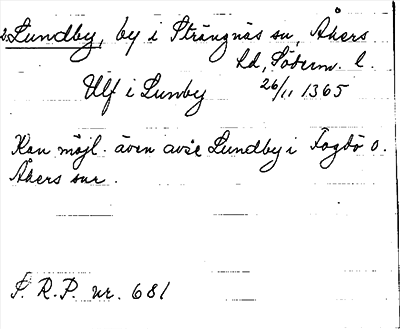 2. Lundby, by i Strängnäs sn, Åkers
hd, Söderm. l.
Ulf i Lunby 26/11 1365
Kan möjl. även avse Lundby i Fogdö o.
Åkers snr.
S. R. P. nr. 681